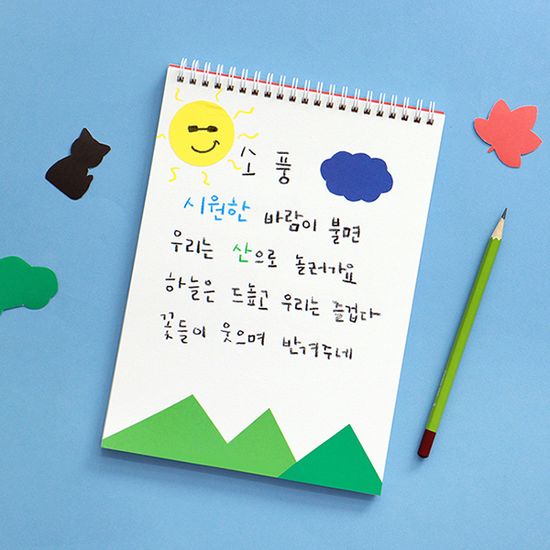 소풍
시원한 바람이 불면
우리는 산으로 놀러가요
하늘은 드높고 우리는 즐겁다
꽃들이 웃으며 반겨주네